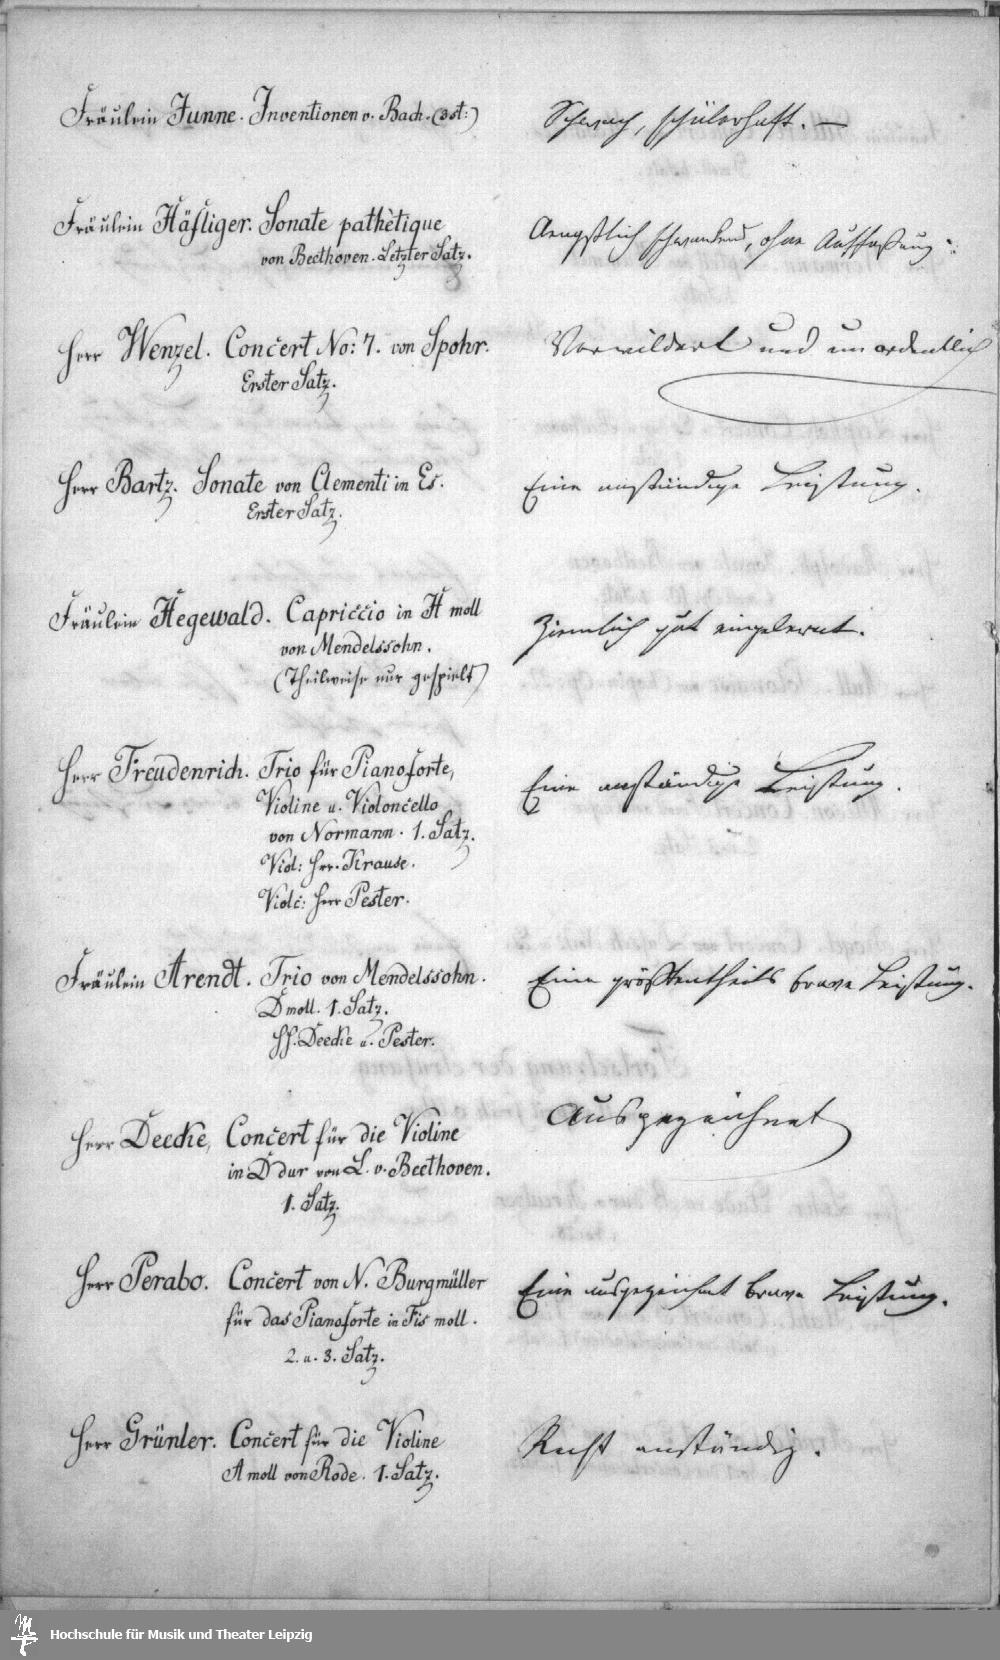 Fräulein Junne. Inventionen v. Bach. (3st:)
Schwach, schülerhaft. —
Fräulein Häfliger. Sonate pathètique
von Beethoven. Letzter Satz.
Aengstlich schwankend, ohne Auffassung.
Herr Wenzel. Concert No: 7. von Spohr.
Erster Satz.
Verwildert und unordentlich
Herr Bartz. Sonate von Clementi in Es.
Erster Satz.
Eine anständige Leistung.
Fräulein Hegewald. Capriccio in H moll
von Mendelssohn.
(Theilweise nur gespielt)
Ziemlich gut eingelernt.
Herr Freudenrich. Trio für Pianoforte,
Violine u. Violoncello
von Normann. 1. Satz.
Viol: Hrr. Krause.
Violc: Herr Pester.
Eine anständige Leistung.
Fräulein Arendt. Trio von Mendelssohn.
D moll. 1. Satz.
HH. Deecke u. Pester.
Eine größtentheils brave Leistung.
Herr Deecke, Concert für die Violine
in D dur von L. v. Beethoven.
1. Satz.
Ausgezeichnet
Herr Perabo. Concert von N. Burgmüller
für das Pianoforte in Fis moll.
2. u. 3. Satz.
Eine ausgezeichnet brave Leistung.
Herr Grünler. Concert für die Violine
A moll von Rode. 1. Satz.
Recht anständig.
Hochschule für Musik und Theater Leipzig